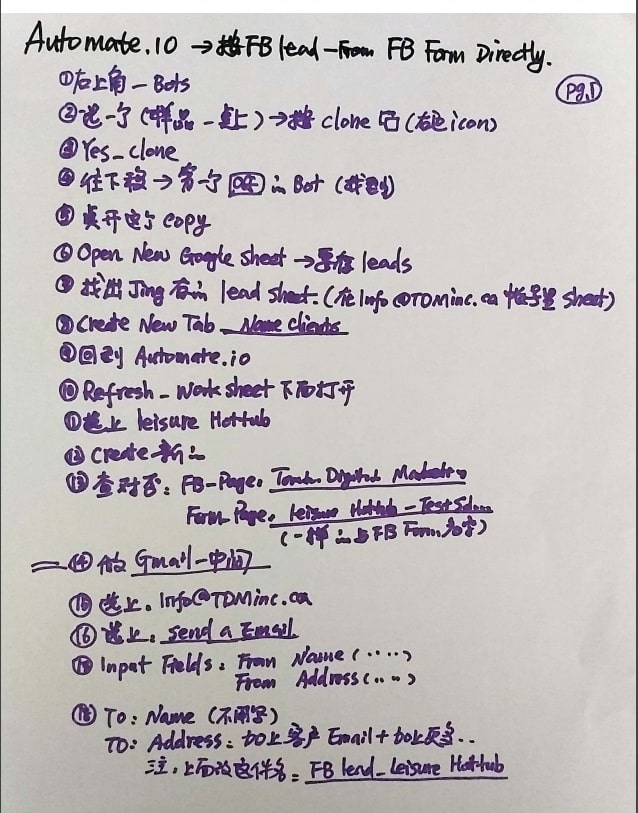 Automate.io → FB lead – From FB Form Directly.
Pg.1
① 右上角 – Bots
② 选一个 (样品 – 点上) → 按 clone (右边 icon)
③ Yes – clone
④ 往下移 → Bot (找到)
⑤ 点开这个 copy
⑥ Open New Google sheet → 要存 leads
⑦ 找出 Jing lead sheet. (在 Info@TDMinc.ca sheet)
⑧ Create New Tab – Name clients
⑨ 回到 Automate.io
⑩ Refresh – Work sheet 下面打开
⑪ 选上 leisure Hottub
⑫ Create 新
⑬ 查对否: FB-Page. Digital
Form Page. leisure Hottub – Test
(一样 与 FB Form 名字)
⑭ 做 Gmail – 中间
⑮ 选上. Info@TDMinc.ca
⑯ 选上. Send a Email
⑰ Input Fields: From Name (....)
From Address (....)
⑱ To: Name (不用写)
To: Address: 加上客户 Email + 加上
注: 上面 件名 = FB lead – Leisure Hottub